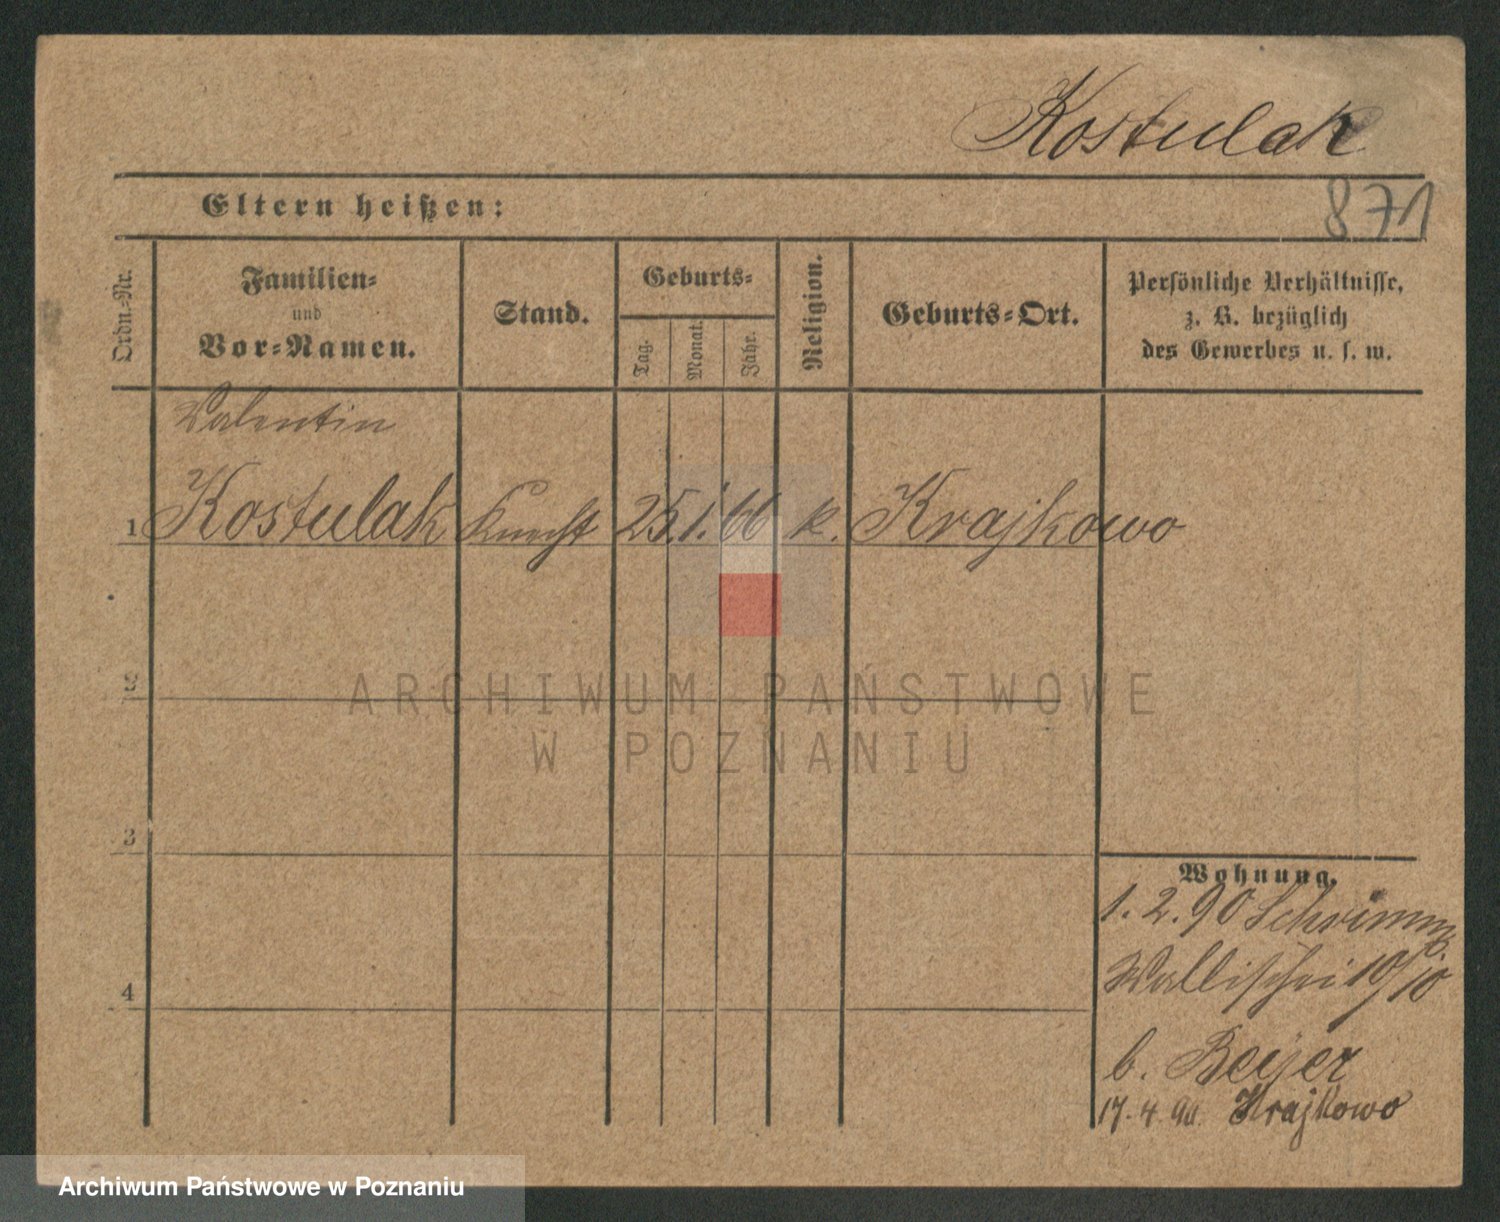 Kostulak
871
Eltern heißen:
Ordn.-Nr.
Familien-
und
Vor-Namen.
Stand.
Geburts-
Tag.
Monat.
Jahr.
Religion.
Geburts-Ort.
Persönliche Verhältnisse,
z. B. bezüglich
des Gewerbes u. s. w.
Valentin
1 Kostulak Knecht 25. 1. 66 k. Krajkowo
2
3
4
ARCHIWUM PAŃSTWOWE
W POZNANIU
Wohnung.
1. 2. 90 Schrimm
Wallischei 10/10
b. Beyer
17. 4. 90. Krajkowo
Archiwum Państwowe w Poznaniu